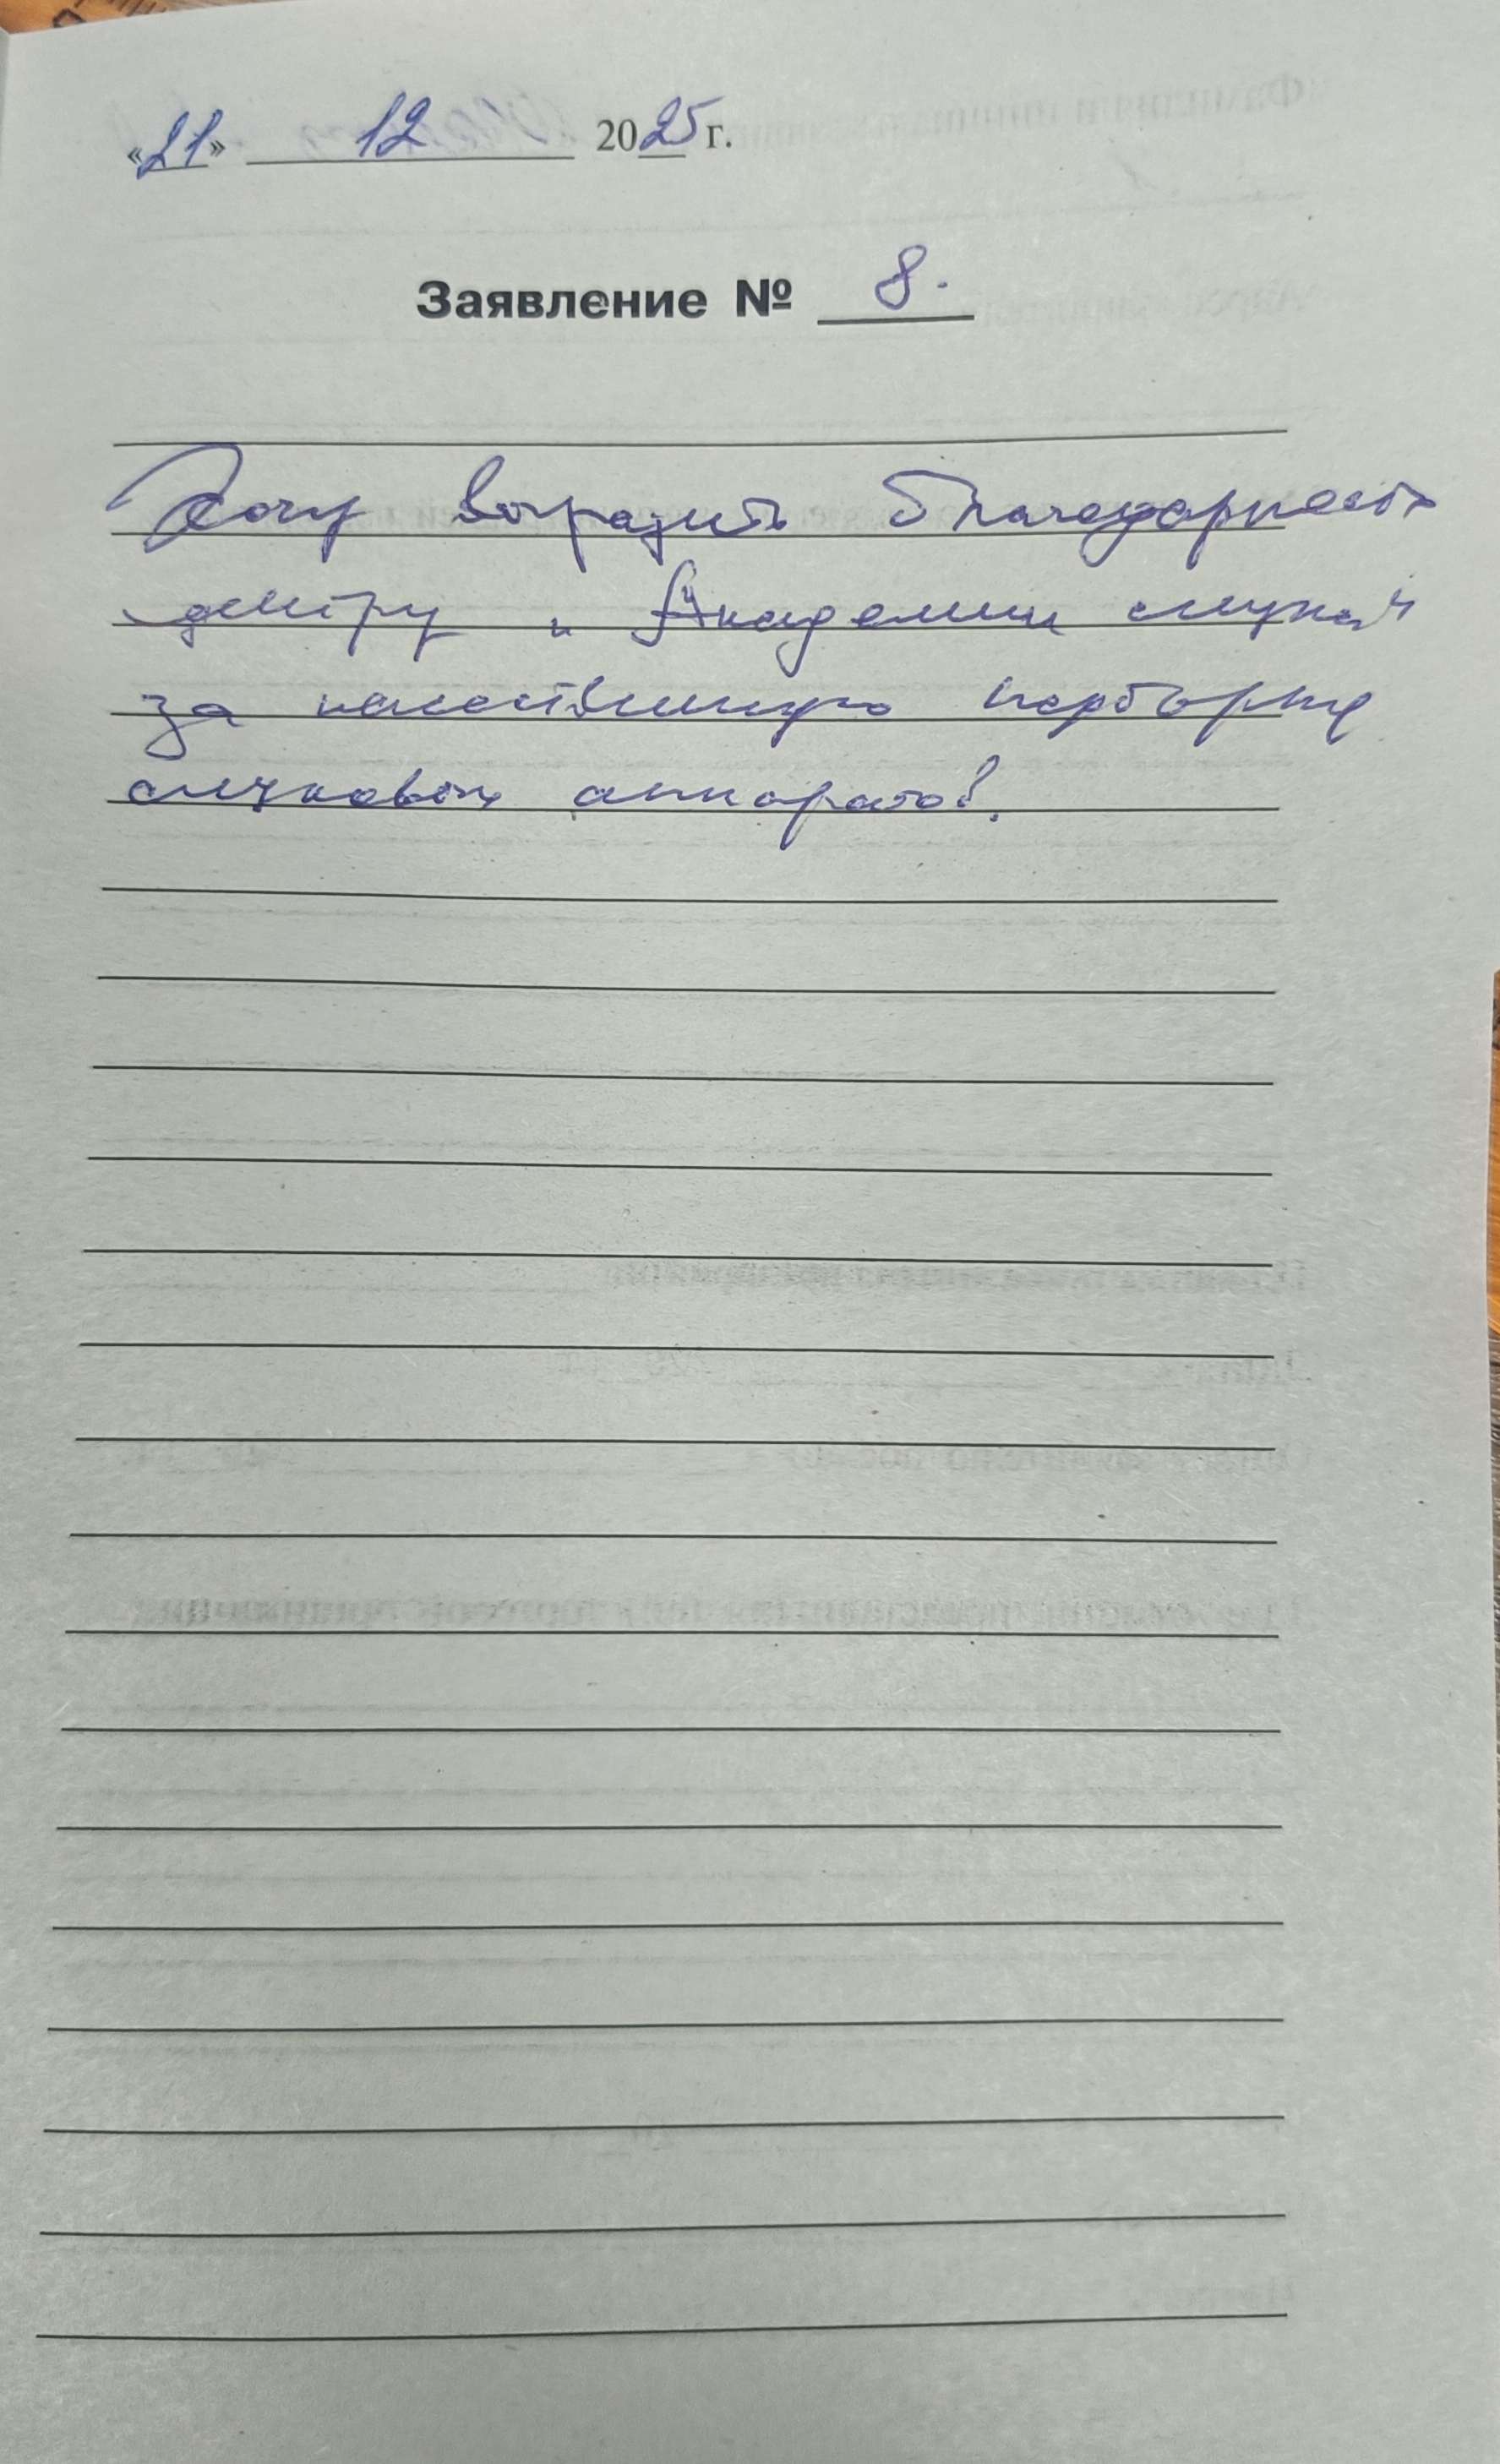 «21» 12 2025 г.
Заявление № 8.
Хочу выразить благодарность
центру „Академии слуха"
за качественную подборку
слуховых аппаратов.